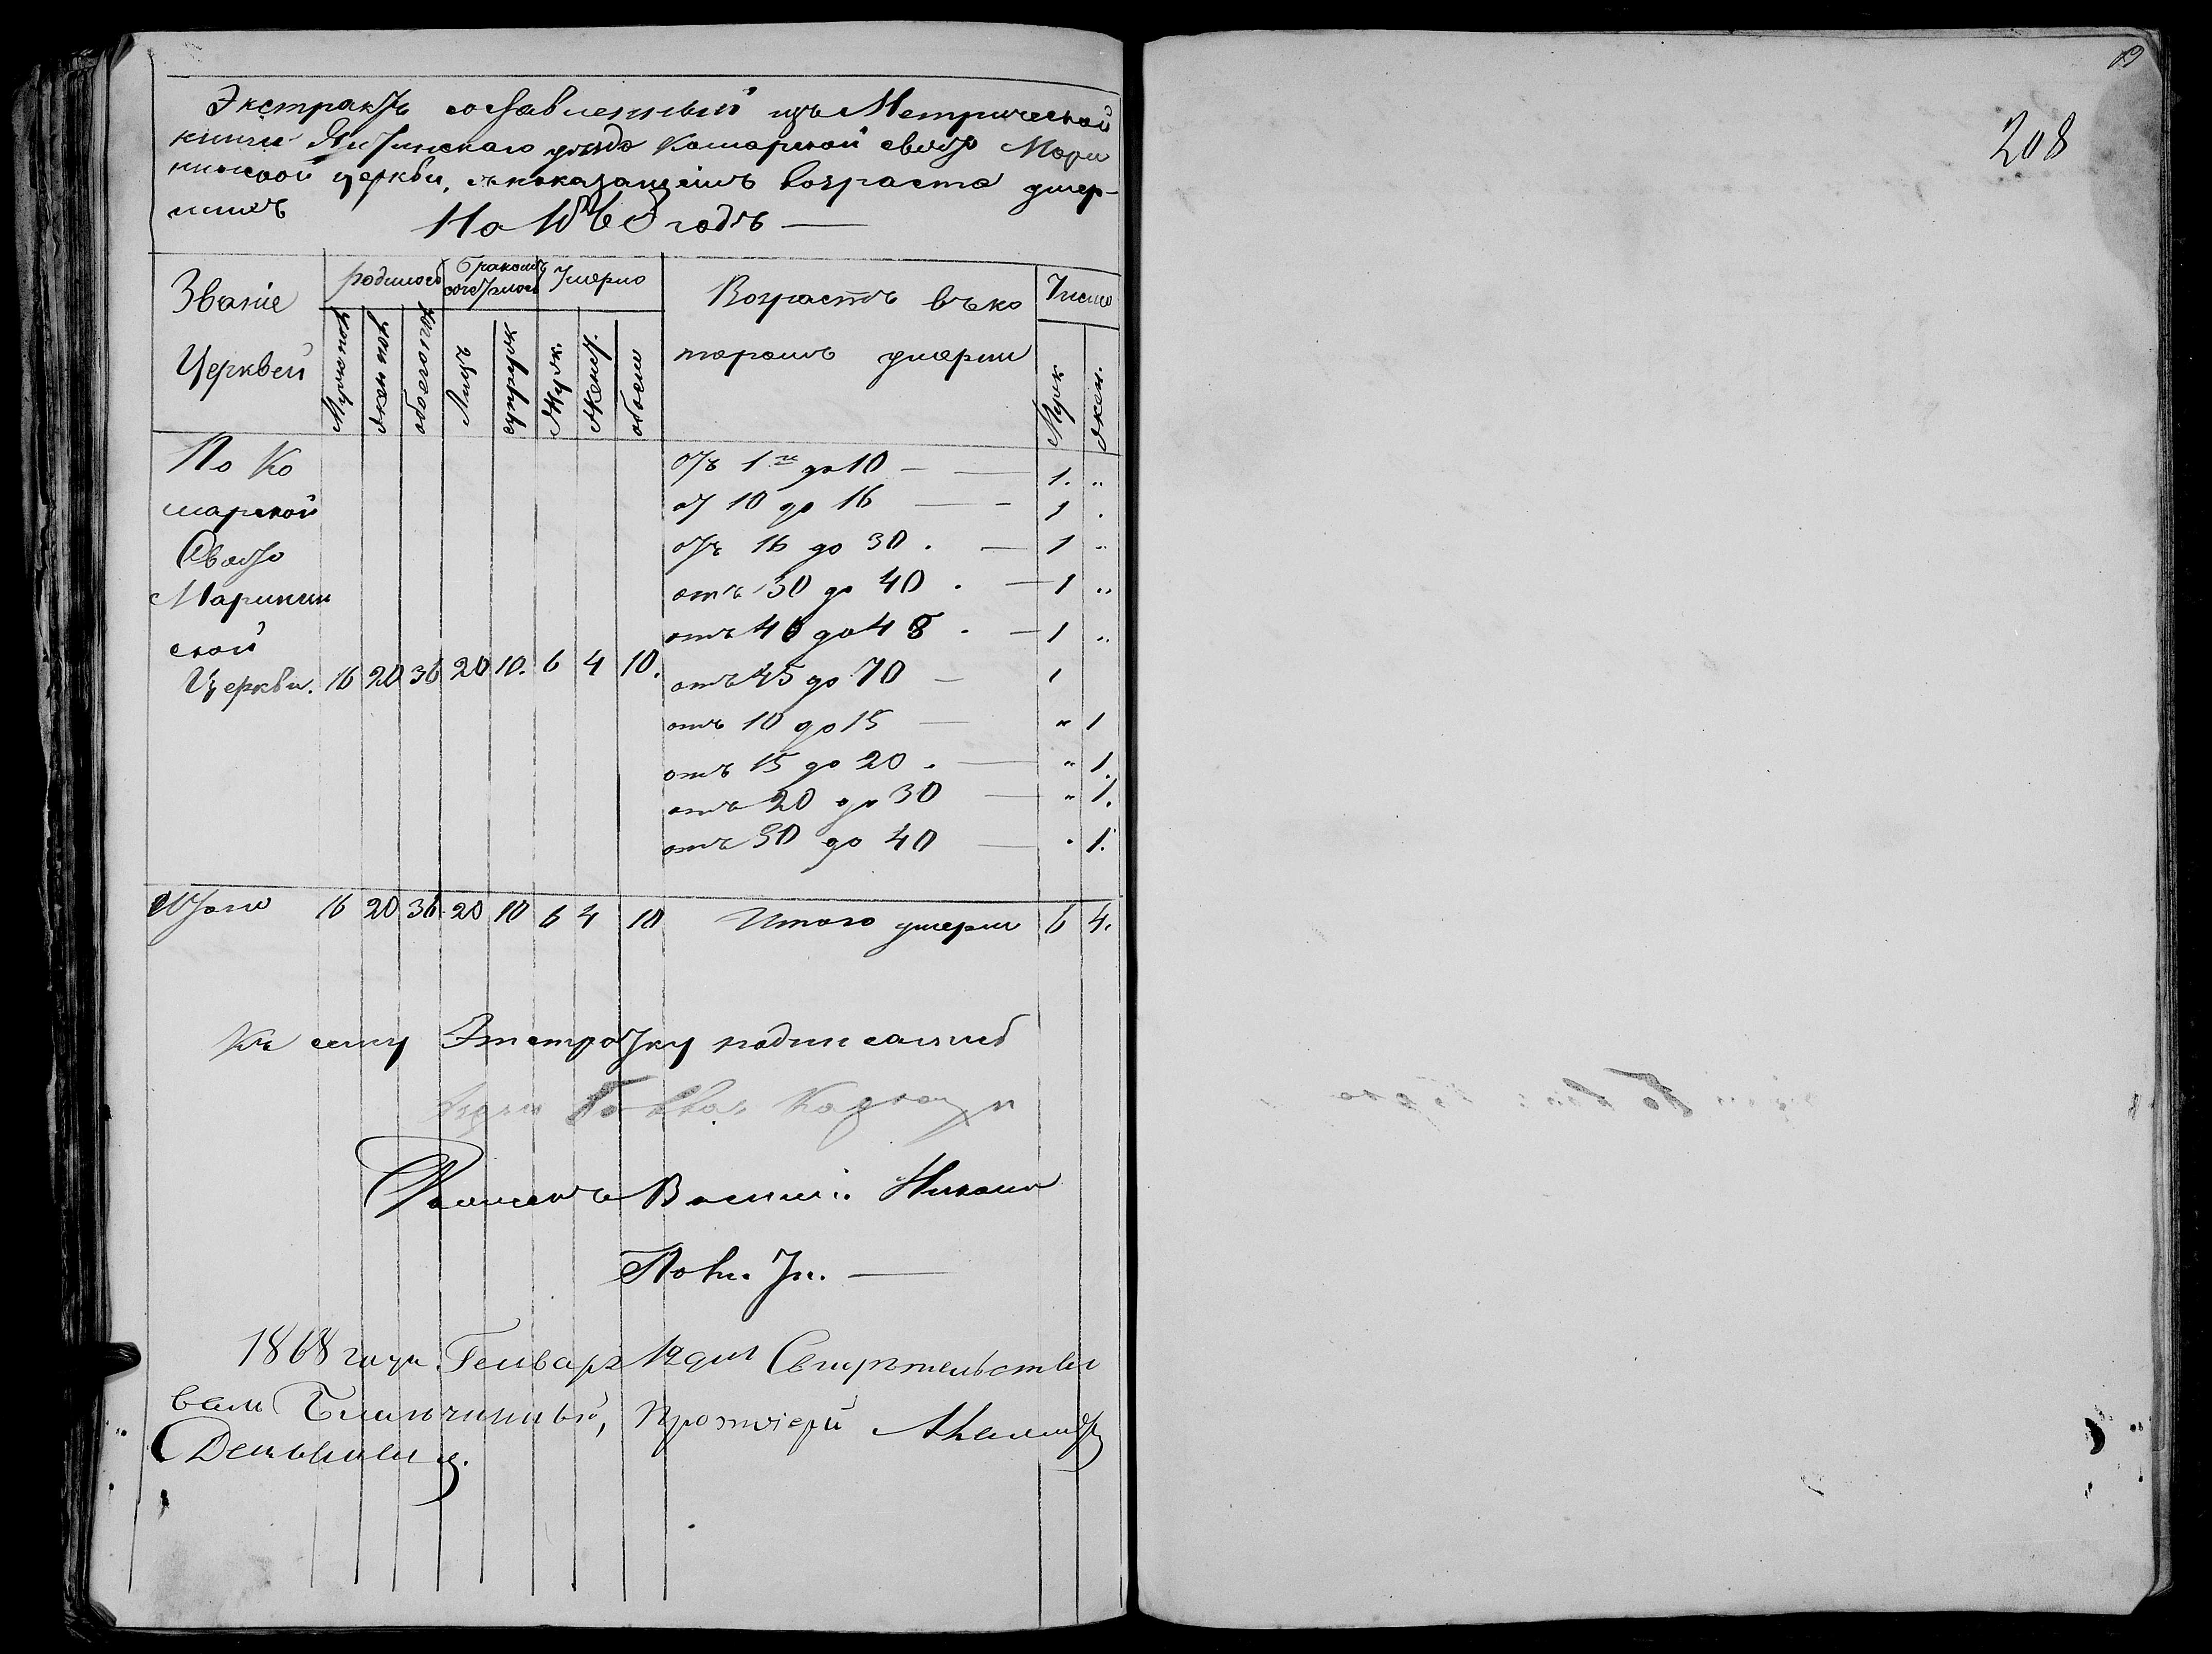 Экстрактъ составленный изъ Метрической
книги Ялтинскаго уѣзда Комарской свято Мари
нинской церкви, съ показаніемъ возраста умер-
шихъ
На 18 годъ —
Званіе Церквей | родилось | бракомъ сочеталось | Умерло | Возрастъ въ ко торомъ умерли | Число
Мужск пол | женск пол | обоего пол | Лицъ | супружс | Муж. | Женск. | обоего | Муж | жен.
По Ко
марской
Свято
Маринин
ской
Церкви. 16 20 36 20 10. 6 4 10.
отъ 1 го до 10 — — 1. "
от 10 до 16 — - 1 .
отъ 16 до 30 . — 1 "
отъ 30 до 40 . — 1 "
отъ 40 до 48 . — 1 "
отъ 45 до 70 — 1
отъ 10 до 15 — " 1
отъ 15 до 20 . — " 1.
отъ 20 до 30 — " 1.
отъ 30 до 40 — " 1.
Итого 16 20 36 20 10 6 4 10 Итого умерли 6 4.
Къ сему Экстракту подписались
Василій
1868 года Генваря 12 дня Свидѣтельство
валъ Благочинный, Протоіерей
208